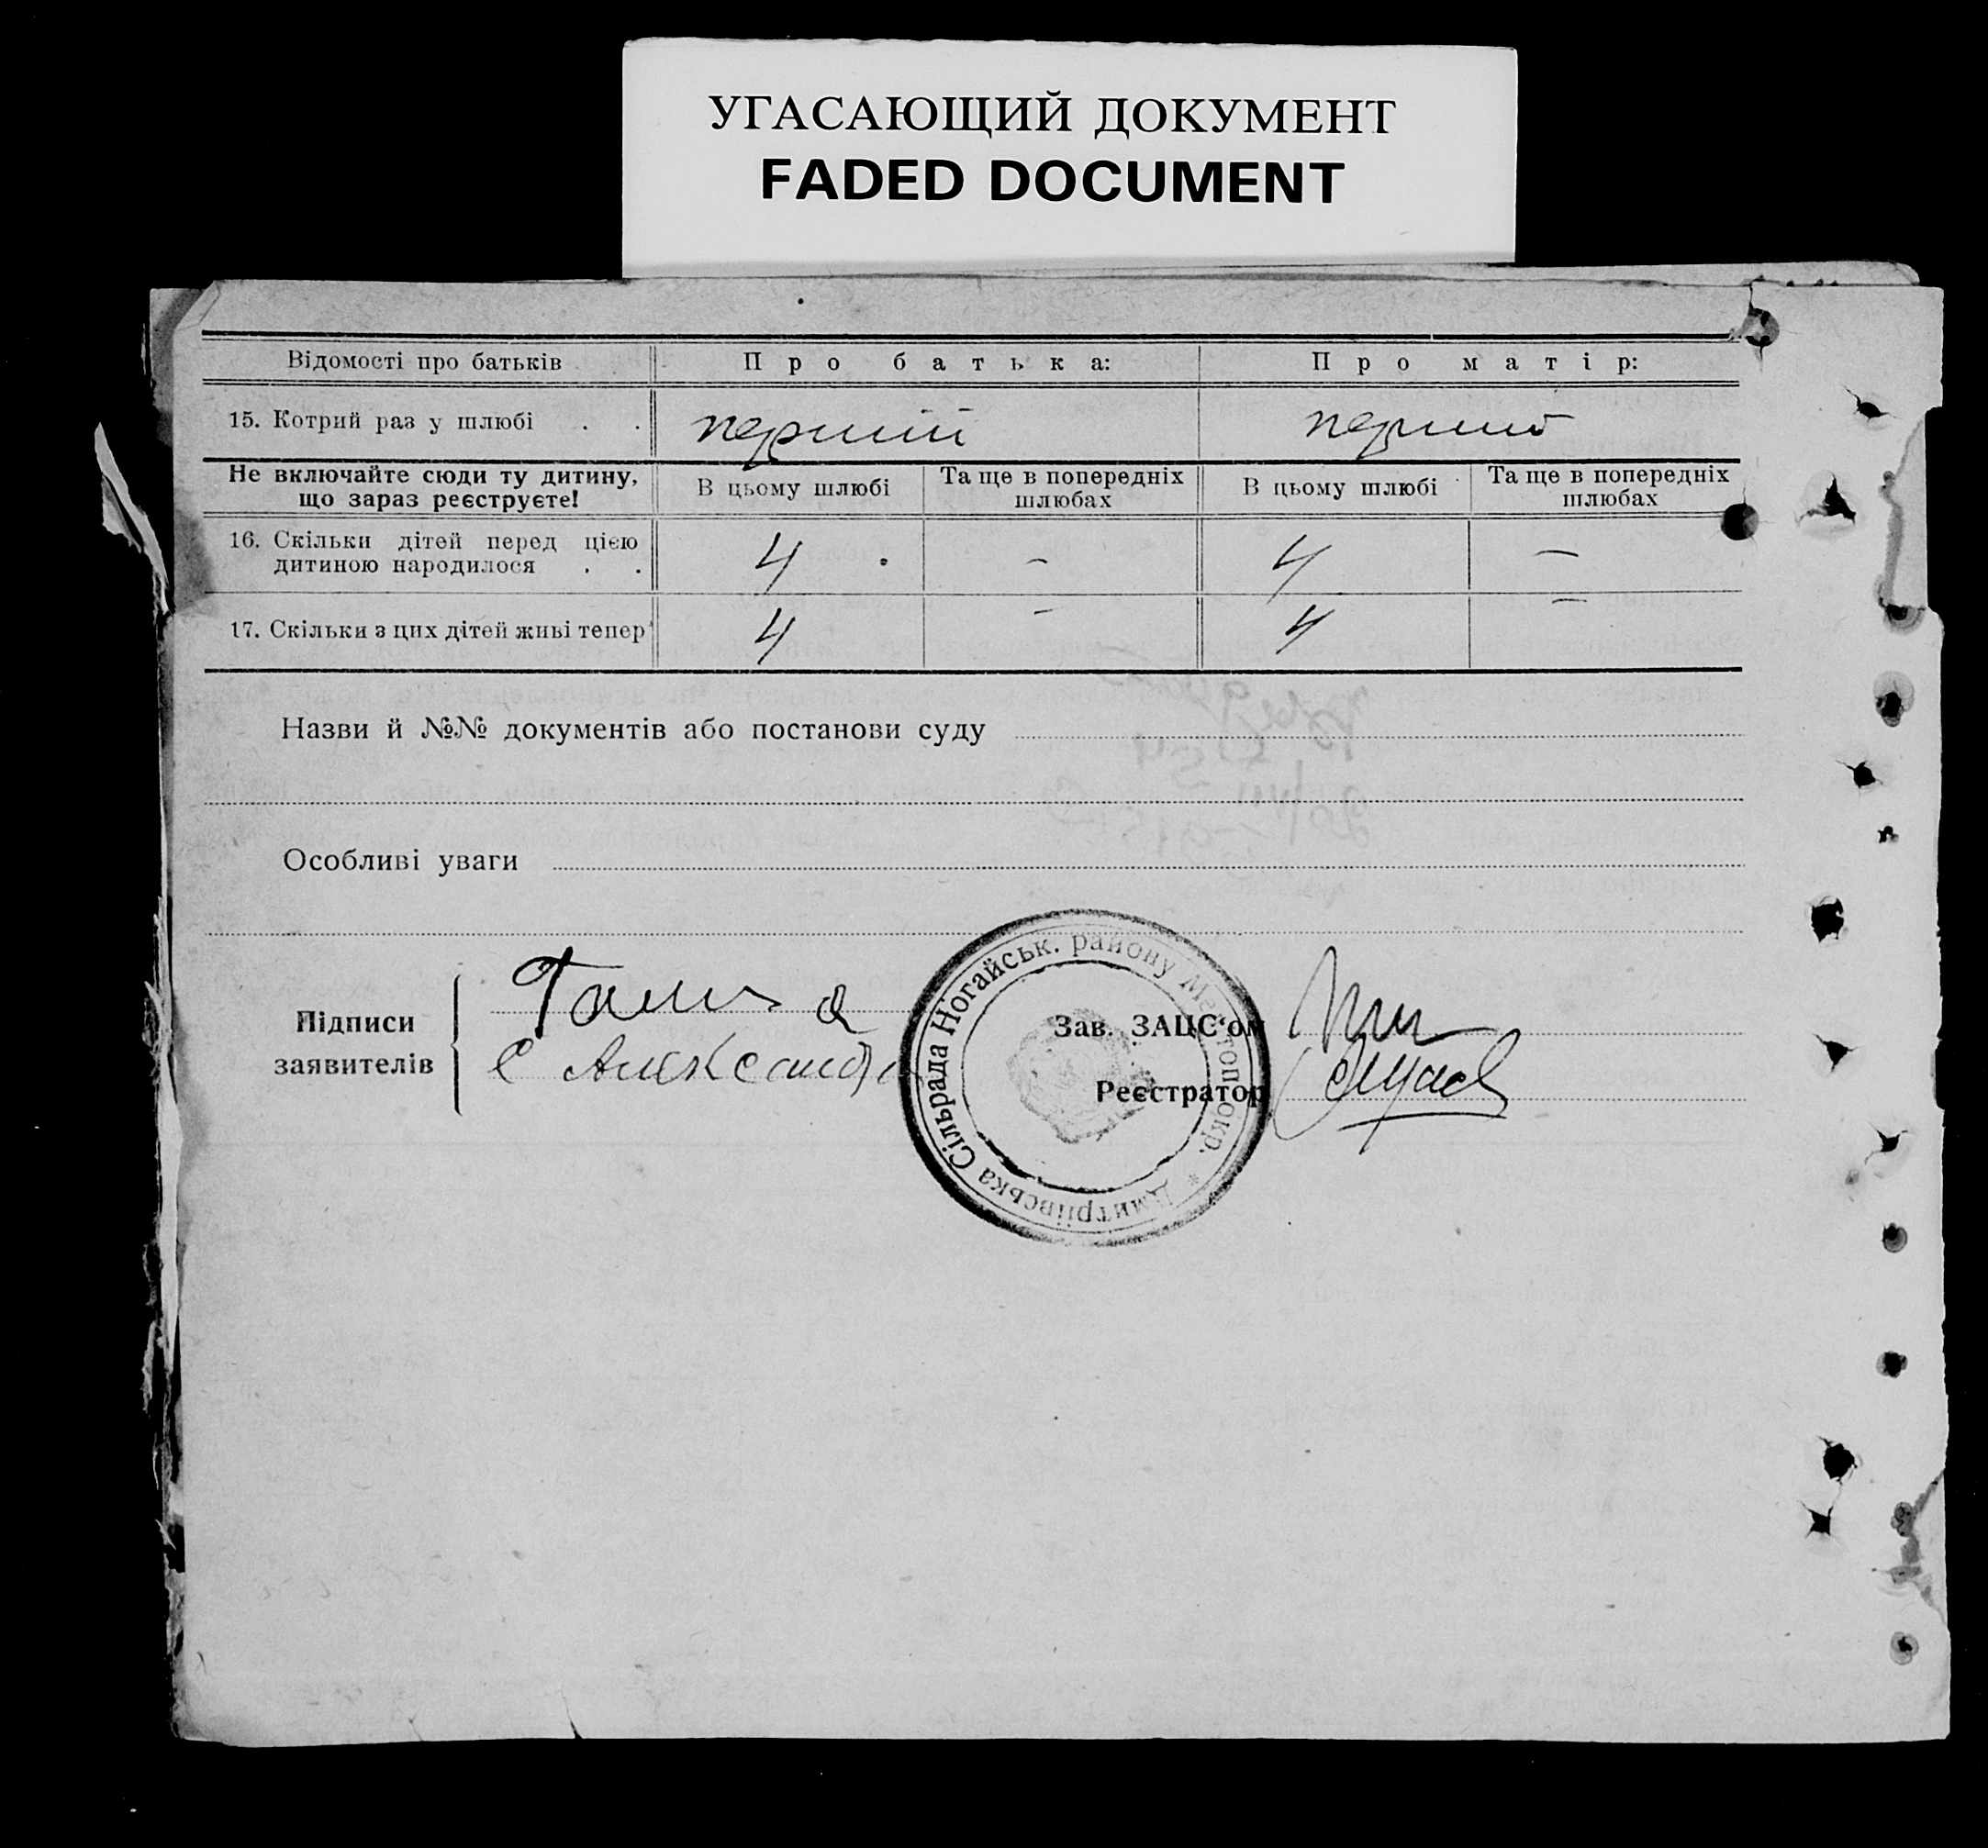 УГАСАЮЩИЙ ДОКУМЕНТ
FADED DOCUMENT
Відомості про батьків
Про батька:
Про матір:
15. Котрий раз у шлюбі . .
перший
Не включайте сюди ту дитину,
що зараз реєструєте!
В цьому шлюбі
Та ще в попередніх
шлюбах
В цьому шлюбі
Та ще в попередніх
шлюбах
16. Скільки дітей перед цією
дитиною народилося . .
4 - 4 —
17. Скільки з цих дітей живі тепер
4 - 4 —
Назви й №№ документів або постанови суду
Особливі уваги
Підписи
заявителів
Зав. ЗАЦС'ом
Реєстратор
Дмитріївська Сільрада Ногайськ. району Мелітоп. окр. *